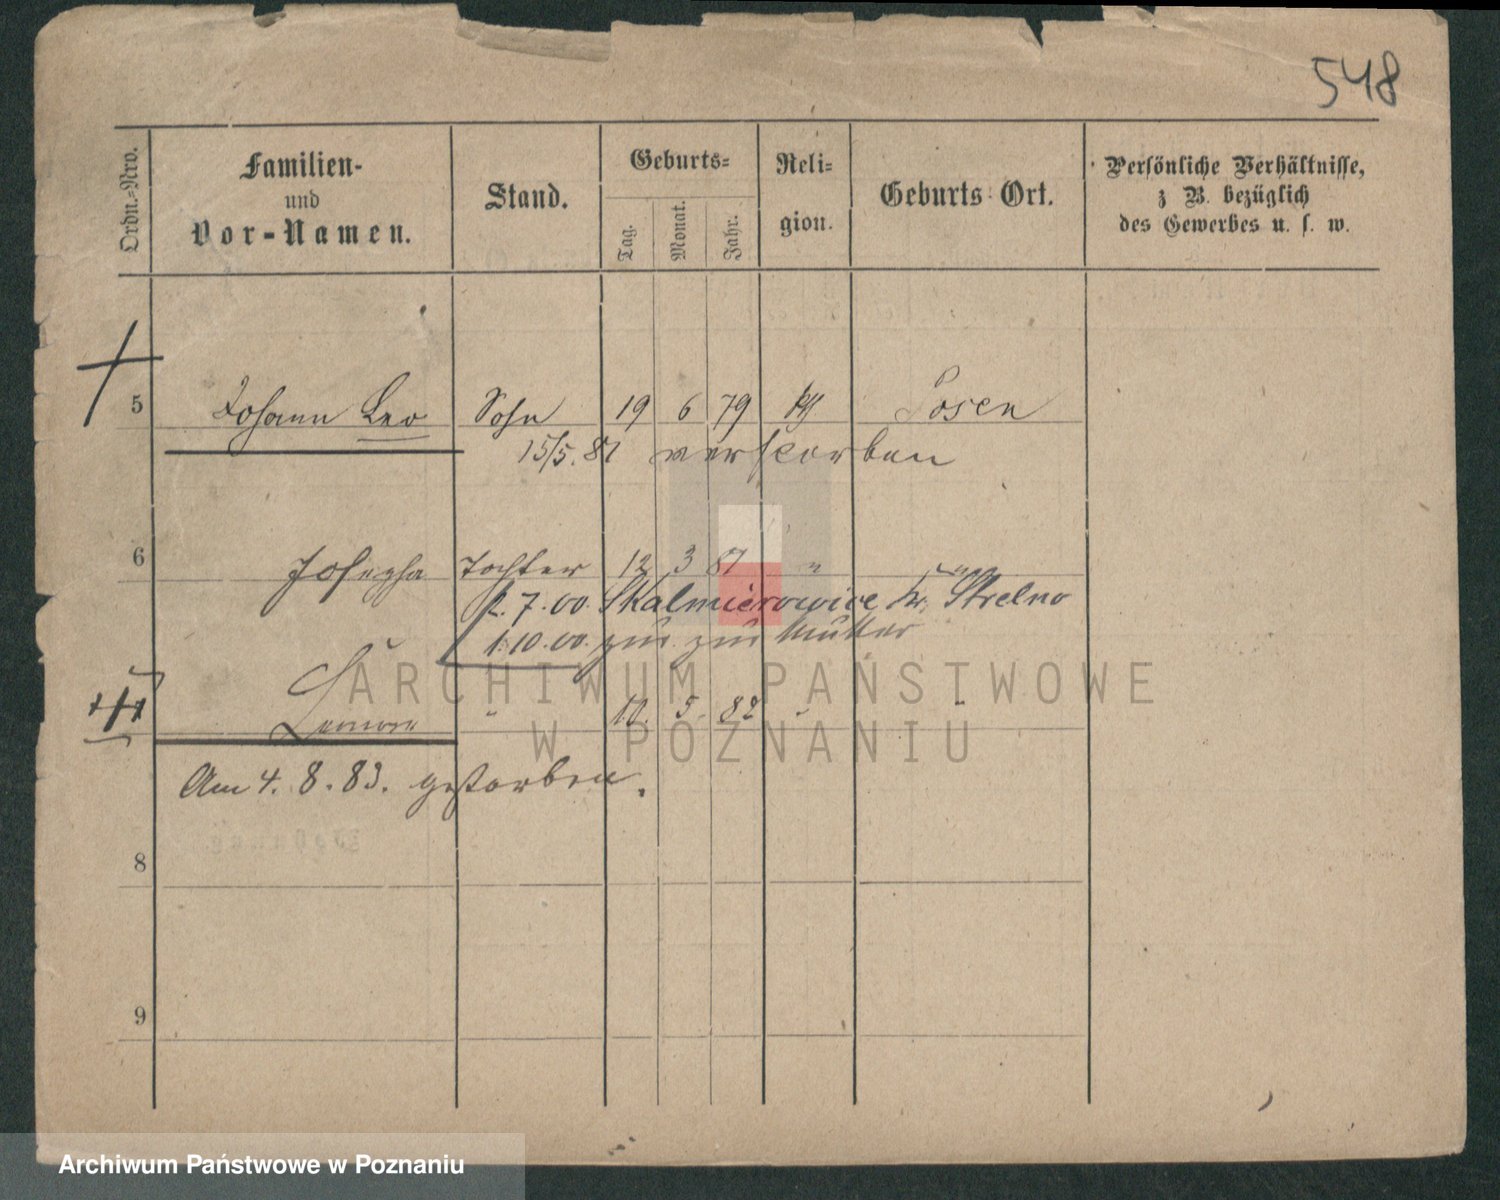 548
Ordn.-Nro.
Familien-
und
Vor-Namen.
Stand.
Geburts-
Tag.
Monat.
Jahr.
Reli-
gion.
Geburts Ort.
Persönliche Verhältnisse,
z B. bezüglich
des Gewerbes u. s. w.
5 Johann Leo Sohn 19 6 79 kth Posen
15/5. 81 verstorben
6 Josepha Tochter 12 3 81 " "
2. 7. 00. Skalmierowice Kr. Strelno
1. 10. 00. zur Mutter
" 5. 82 " "
Am 4. 8. 83. gestorben.
8
9
ARCHIWUM PAŃSTWOWE
W POZNANIU
Archiwum Państwowe w Poznaniu